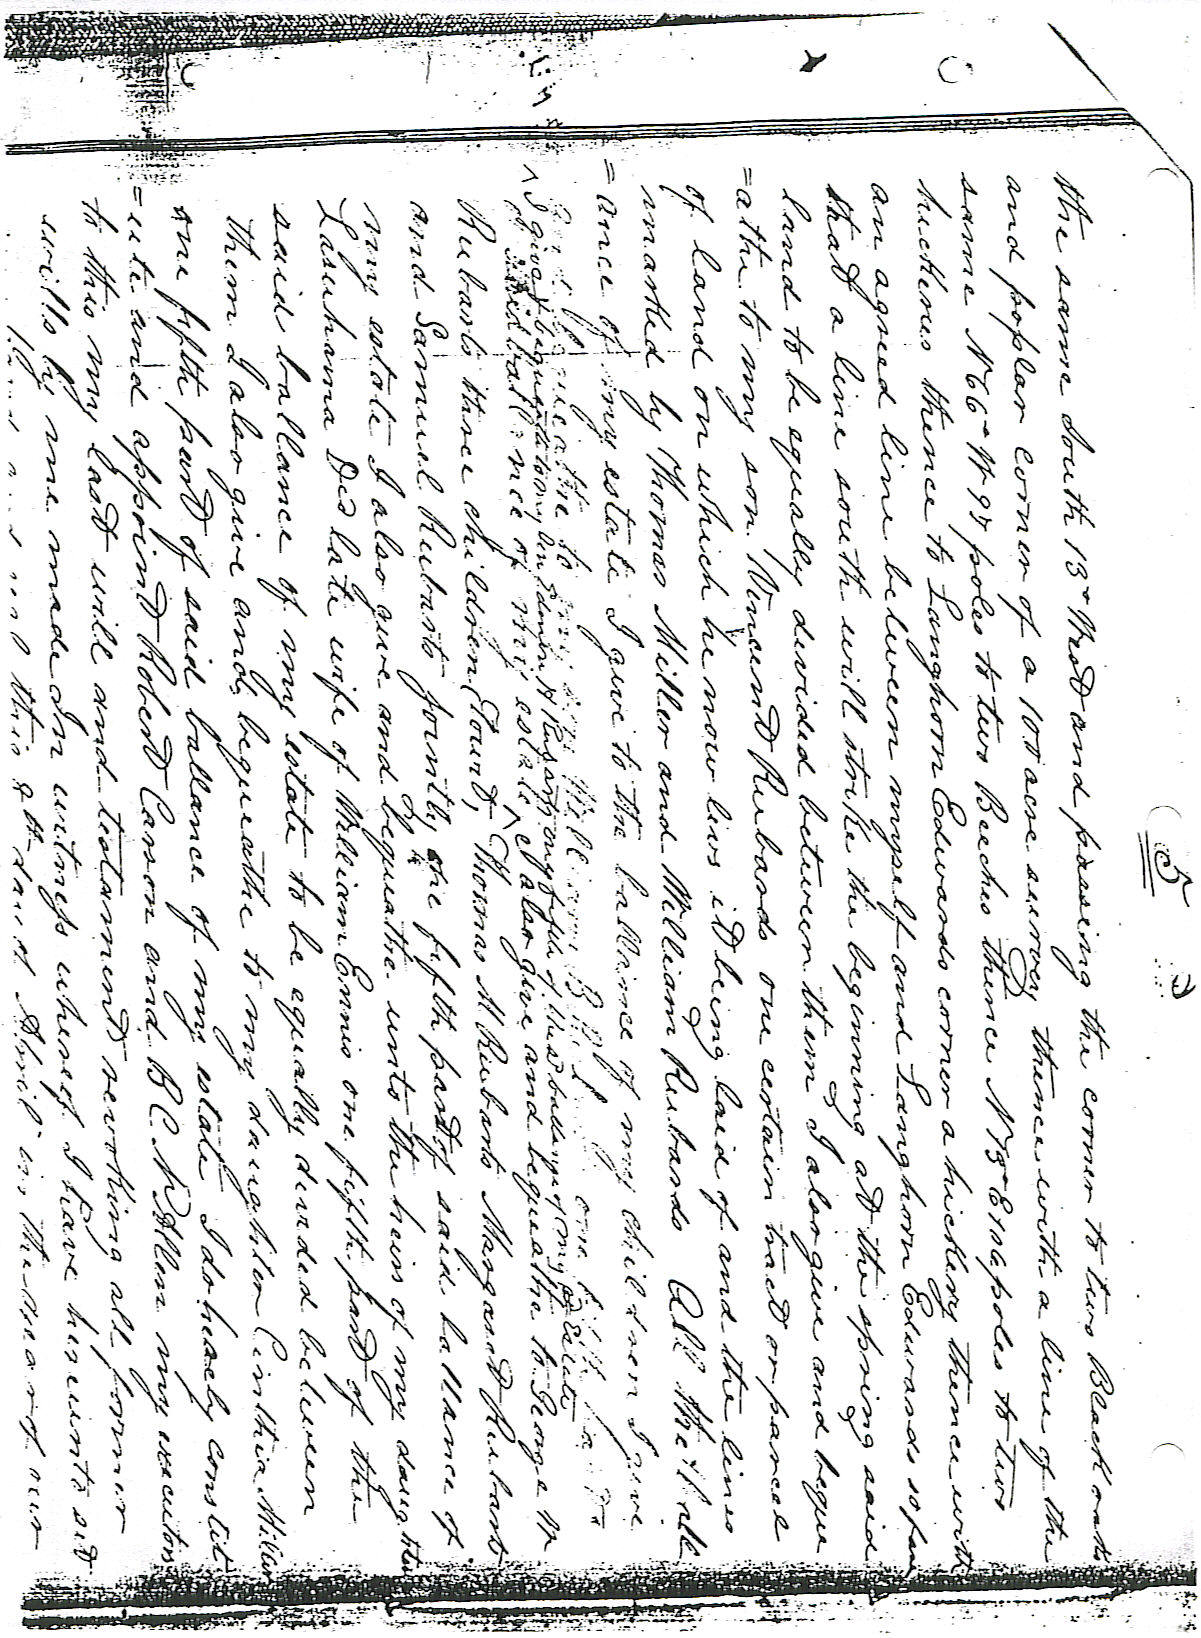 5
the same South 13° West and passing the corner to two Black oaks
and poplar corner of a 100 acre survey thence with a line of the
same N66°W 98 poles to two Beeches thence N 3°E 102 poles to two
hickories thence to Langhorn Edwards corner a hickory thence with
an agreed line between myself and Langhorn Edwards so far
that a line south will strike the beginning at the spring said
land to be equally devided between them I also give and beque
=athe to my son Vincend Rubards one certain tract or parcel
of land on which he now lives it being laid of and the lines
marked by Thomas Miller and William Rubards All the ball
=ance of my estate I give to the ballance of my children I give
and bequeathe to William one fifth part
^ I give & bequeathe to my son Rubards my fifth of the ballance of my Estate
of said ballance of my estate ^ I also give and bequeathe to George W
Rubards three children (Towit,) Thomas M Rubards Margaret Rubards
and Samuel Rubards jointly one fifth part of said ballance of
my estate I also give and bequeathe unto the heirs of my daughter
Lasuhama Dcd late wife of William Ennis one fifth part of the
said ballance of my estate to be equally divided between
them I also give and bequeathe to my daughter Cinthia Miller
one fifth part of said ballance of my estate I do hereby constit
=ute and appoint Robert Carson and B C Allen my executors
to this my last will and testament revoking all former
wills by me made In witness whereof I have hereunto set
my hand and seal this 8th day of April in the year of our